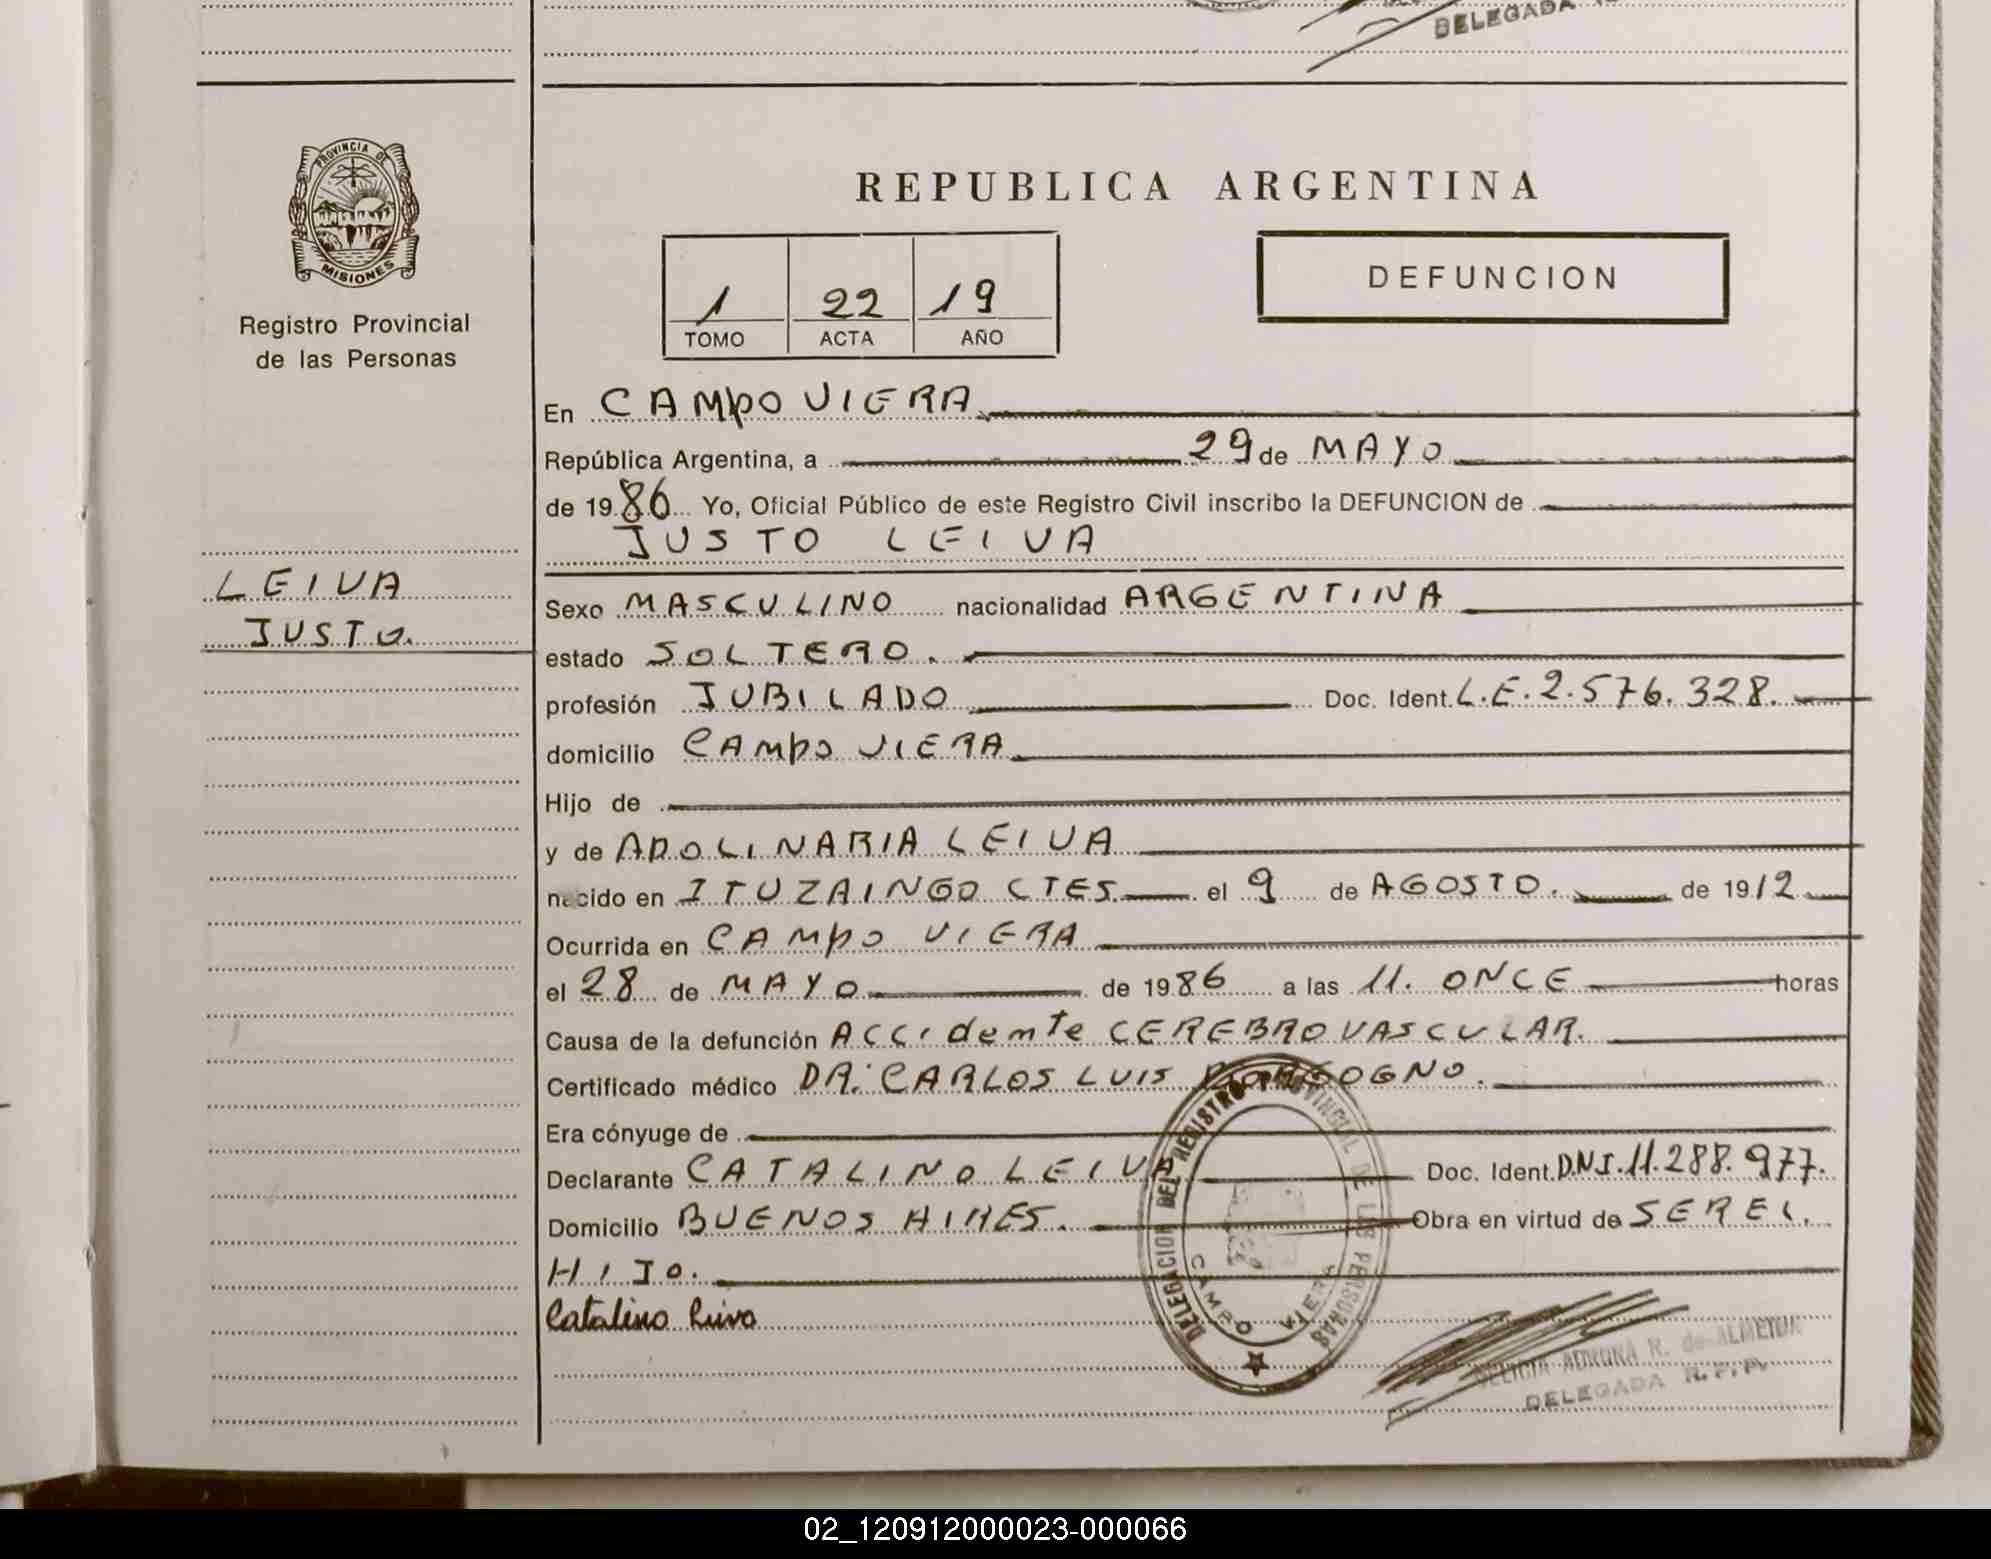 DELEGADA
PROVINCIA DE
MISIONES
Registro Provincial
de las Personas
REPUBLICA ARGENTINA
1 22 19
TOMO ACTA AÑO
DEFUNCION
En CAMPO VIERA
República Argentina, a 29 de MAYO
de 1986 Yo, Oficial Público de este Registro Civil inscribo la DEFUNCION de
JUSTO LEIVA
LEIVA
JUSTO.
Sexo MASCULINO nacionalidad ARGENTINA
estado SOLTERO.
profesión JUBILADO Doc. Ident. L.E. 2.576.328.
domicilio CAMPO VIERA
Hijo de
y de APOLINARIA LEIVA
nacido en ITUZAINGO CTES. el 9 de AGOSTO. de 1912
Ocurrida en CAMPO VIERA
el 28 de MAYO de 1986 a las 11. ONCE horas
Causa de la defunción ACCIdente CEREBROVASCULAR.
Certificado médico DR. CARLOS LUIS
Era cónyuge de
Declarante CATALINO LEIVA Doc. Ident. D.N.I. 11.288.977.
Domicilio BUENOS AIRES. Obra en virtud de SEREL.
HIJO.
Catalino Leiva
DELEGACION DEL REGISTRO PROVINCIAL DE LAS PERSONAS
CAMPO VIERA
R. de ALMEIDA
DELEGADA R.P.P.
02_120912000023-000066